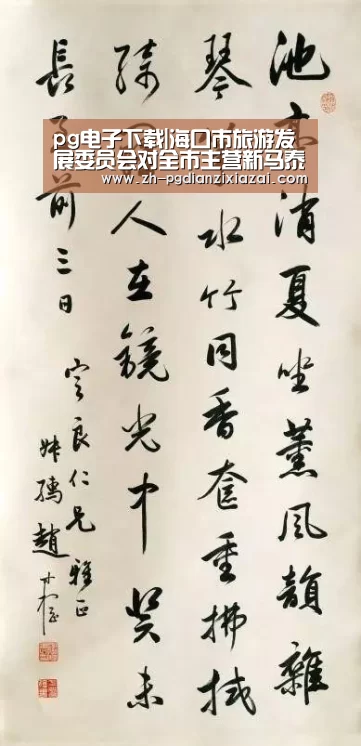 pg电子下载|海口市旅游发
展委员会对全市主营新马泰
www.zh-pgdianzixiazai.com
池亭消夏坐薰風韻雜
琴水竹同香奩重拂拭
綺人在鏡光中癸未
長前三日
良仁兄雅正
趙